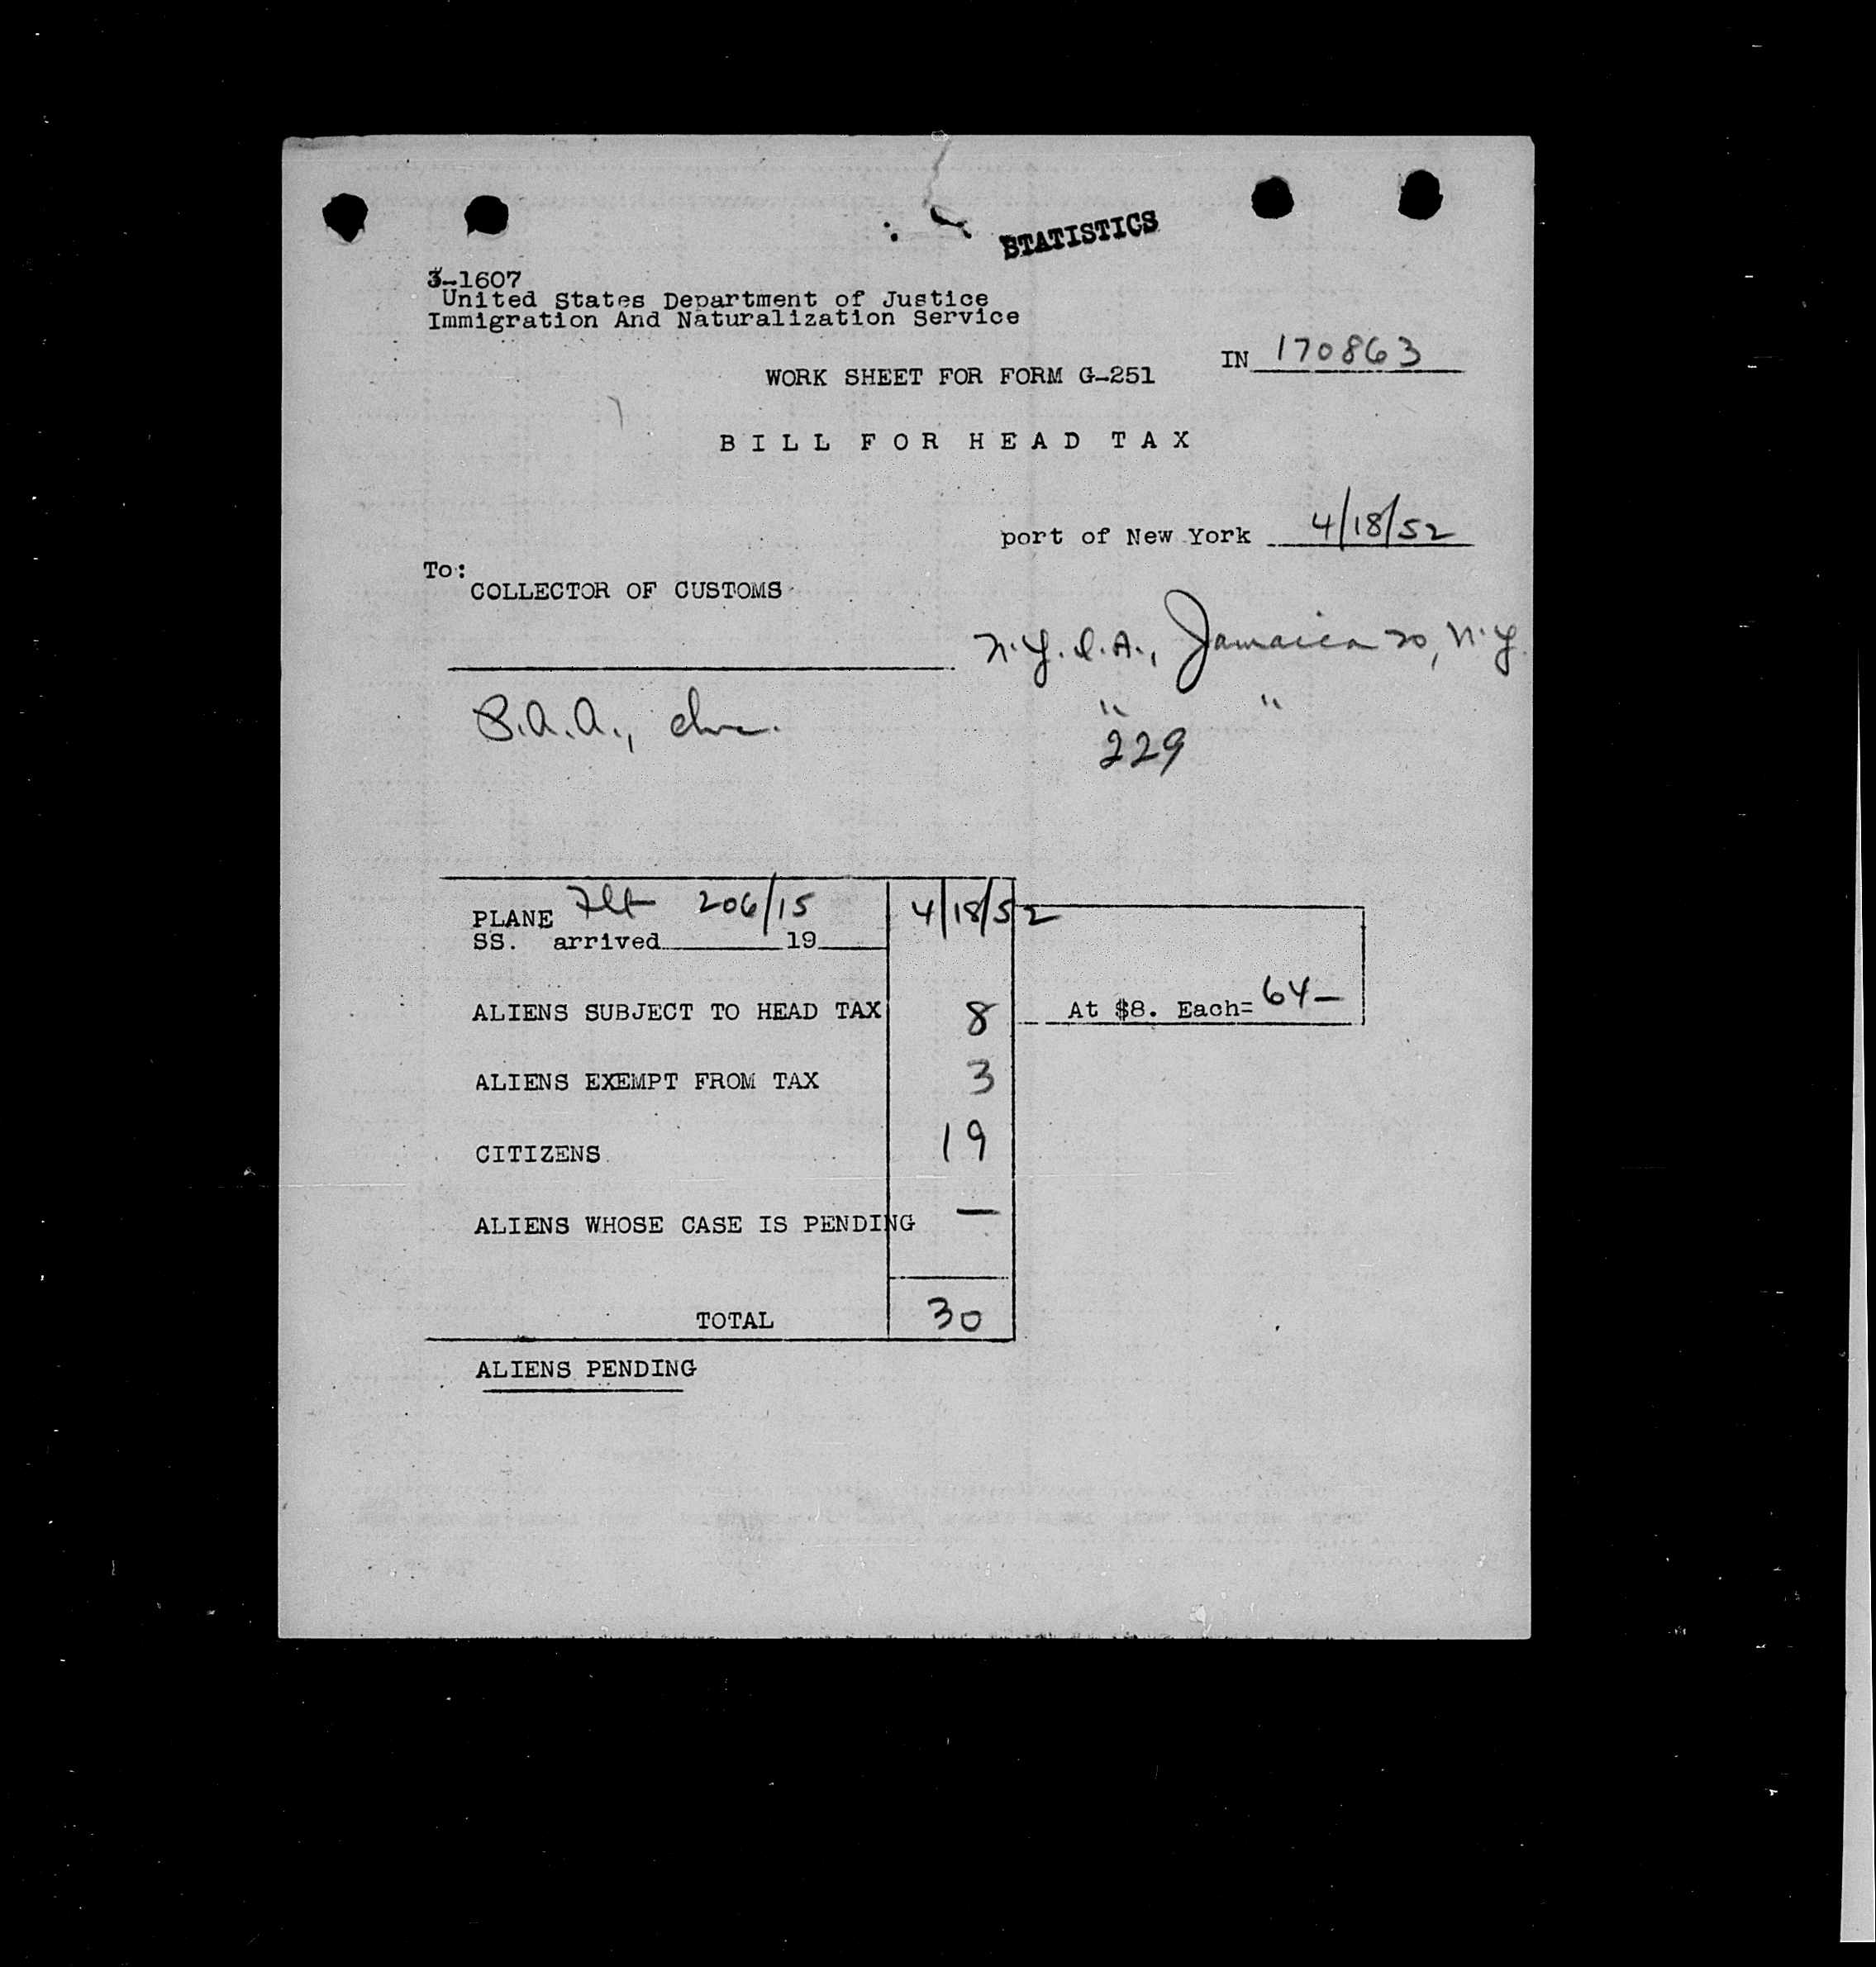 STATISTICS
3-1607
United States Department of Justice
Immigration And Naturalization Service
IN 170863
WORK SHEET FOR FORM G-251
BILL FOR HEAD TAX
port of New York 4/18/52
To:
COLLECTOR OF CUSTOMS
N.Y.I.A., Jamaica 20, N.Y.
P.A.A., Inc. " "
229
PLANE Flt 206/15 4/18/52
SS. arrived 19
ALIENS SUBJECT TO HEAD TAX 8 At $8. Each= 64—
ALIENS EXEMPT FROM TAX 3
CITIZENS 19
ALIENS WHOSE CASE IS PENDING —
TOTAL 30
ALIENS PENDING